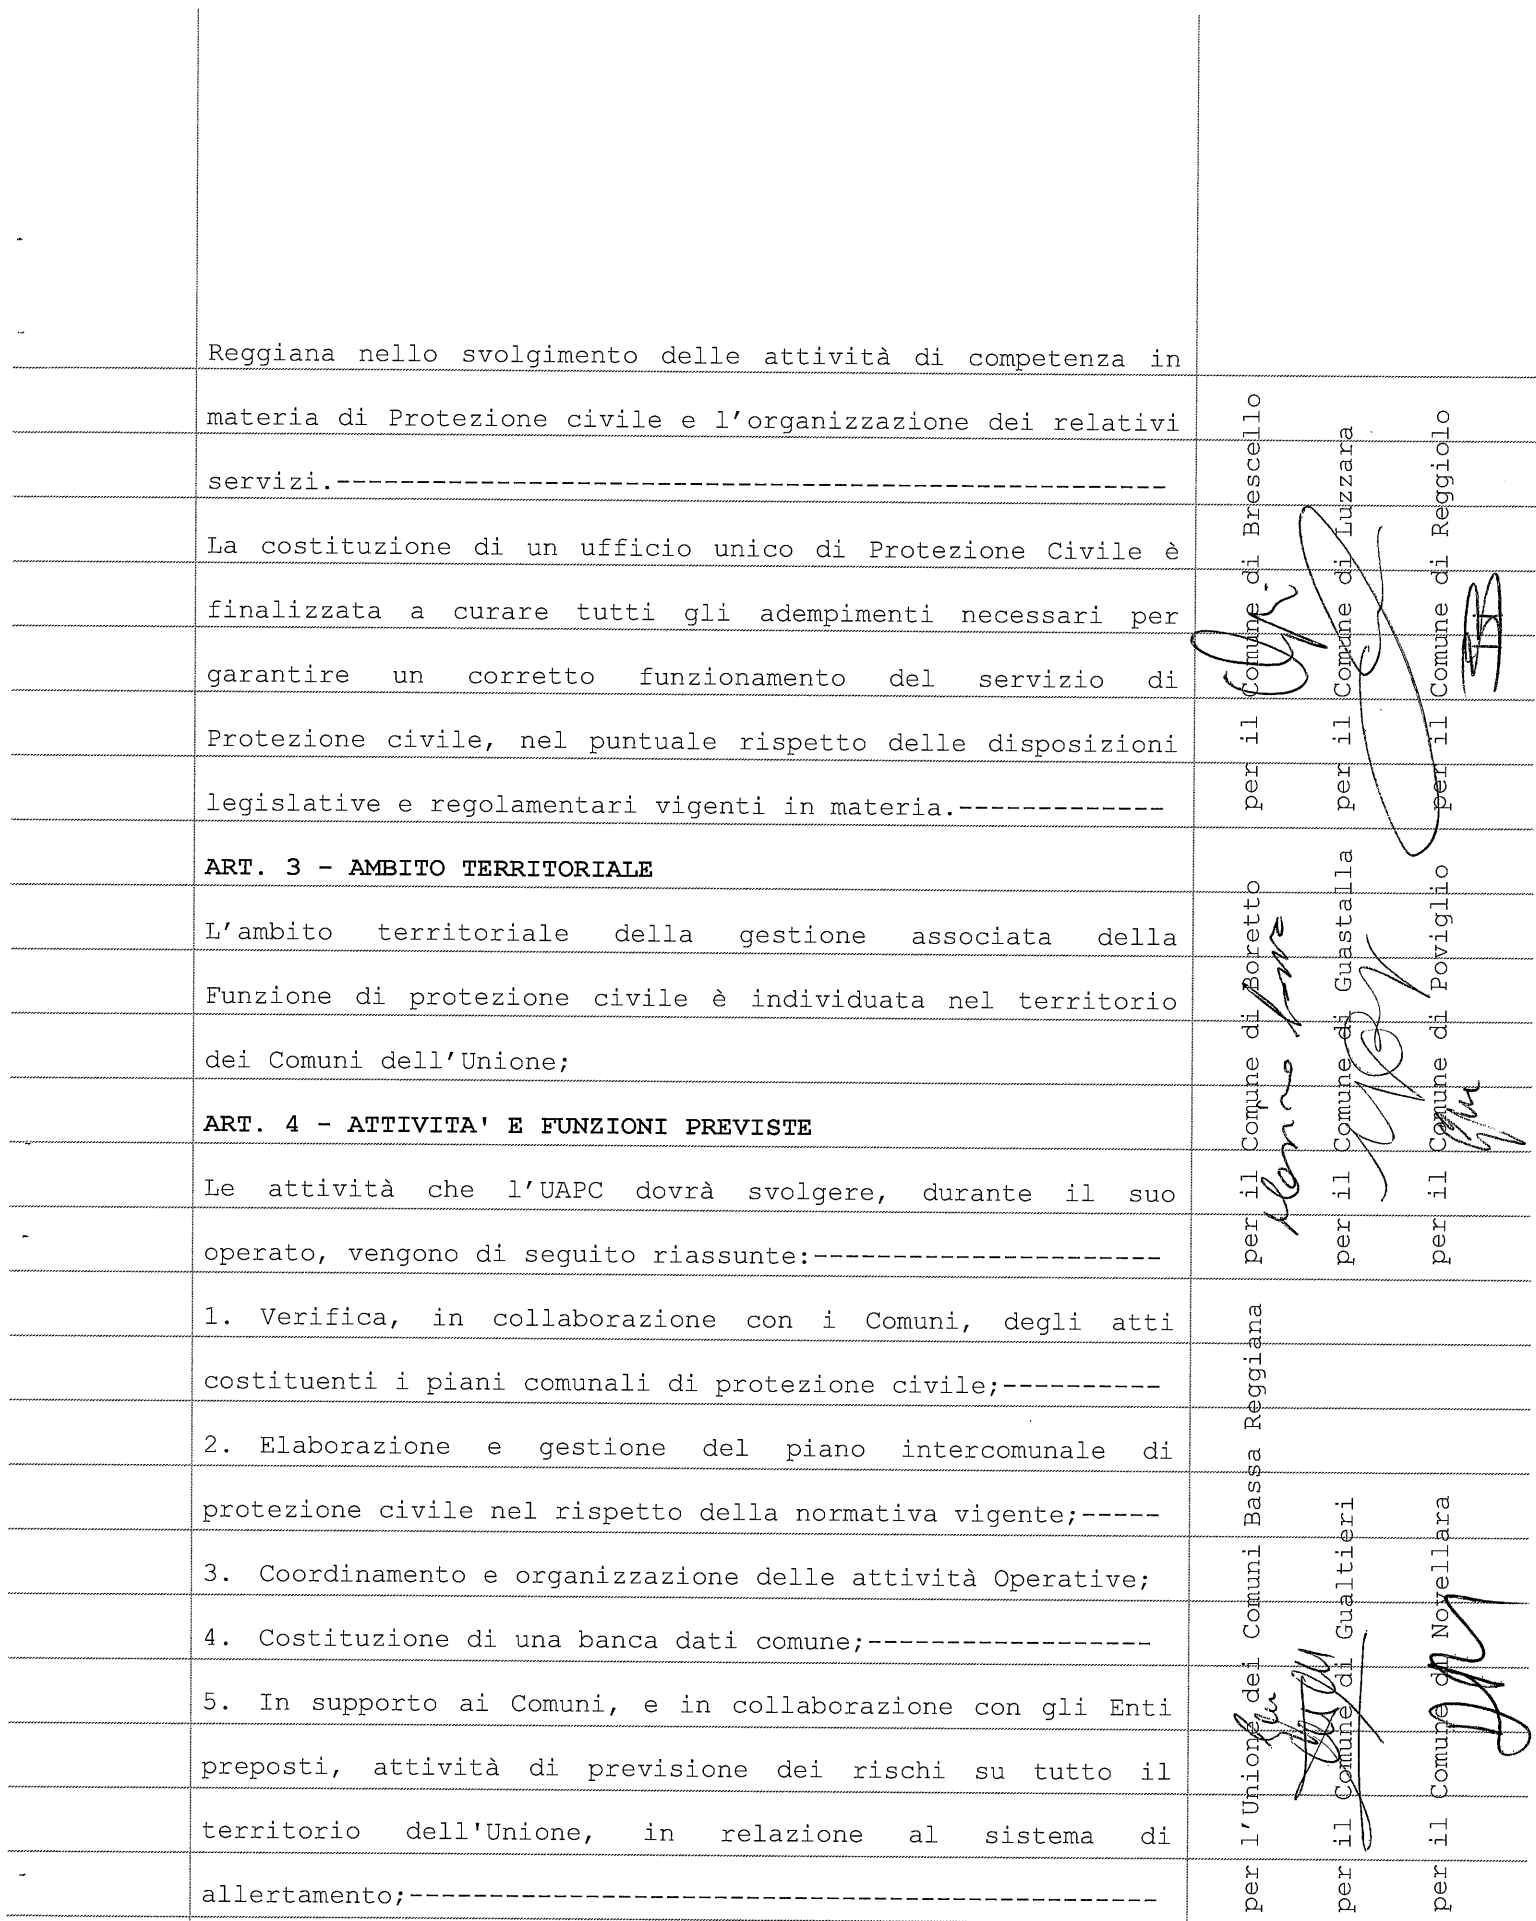 Reggiana nello svolgimento delle attività di competenza in
materia di Protezione civile e l'organizzazione dei relativi
servizi.----------------------------------------------------
La costituzione di un ufficio unico di Protezione Civile è
finalizzata a curare tutti gli adempimenti necessari per
garantire un corretto funzionamento del servizio di
Protezione civile, nel puntuale rispetto delle disposizioni
legislative e regolamentari vigenti in materia.-------------
ART. 3 - AMBITO TERRITORIALE
L'ambito territoriale della gestione associata della
Funzione di protezione civile è individuata nel territorio
dei Comuni dell'Unione;
ART. 4 - ATTIVITA' E FUNZIONI PREVISTE
Le attività che l'UAPC dovrà svolgere, durante il suo
operato, vengono di seguito riassunte:----------------------
1. Verifica, in collaborazione con i Comuni, degli atti
costituenti i piani comunali di protezione civile;----------
2. Elaborazione e gestione del piano intercomunale di
protezione civile nel rispetto della normativa vigente;-----
3. Coordinamento e organizzazione delle attività Operative;
4. Costituzione di una banca dati comune;------------------
5. In supporto ai Comuni, e in collaborazione con gli Enti
preposti, attività di previsione dei rischi su tutto il
territorio dell'Unione, in relazione al sistema di
allertamento;-----------------------------------------------
per l'Unione dei Comuni Bassa Reggiana per il Comune di Boretto per il Comune di Brescello
per il Comune di Gualtieri per il Comune di Guastalla per il Comune di Luzzara
per il Comune di Novellara per il Comune di Poviglio per il Comune di Reggiolo